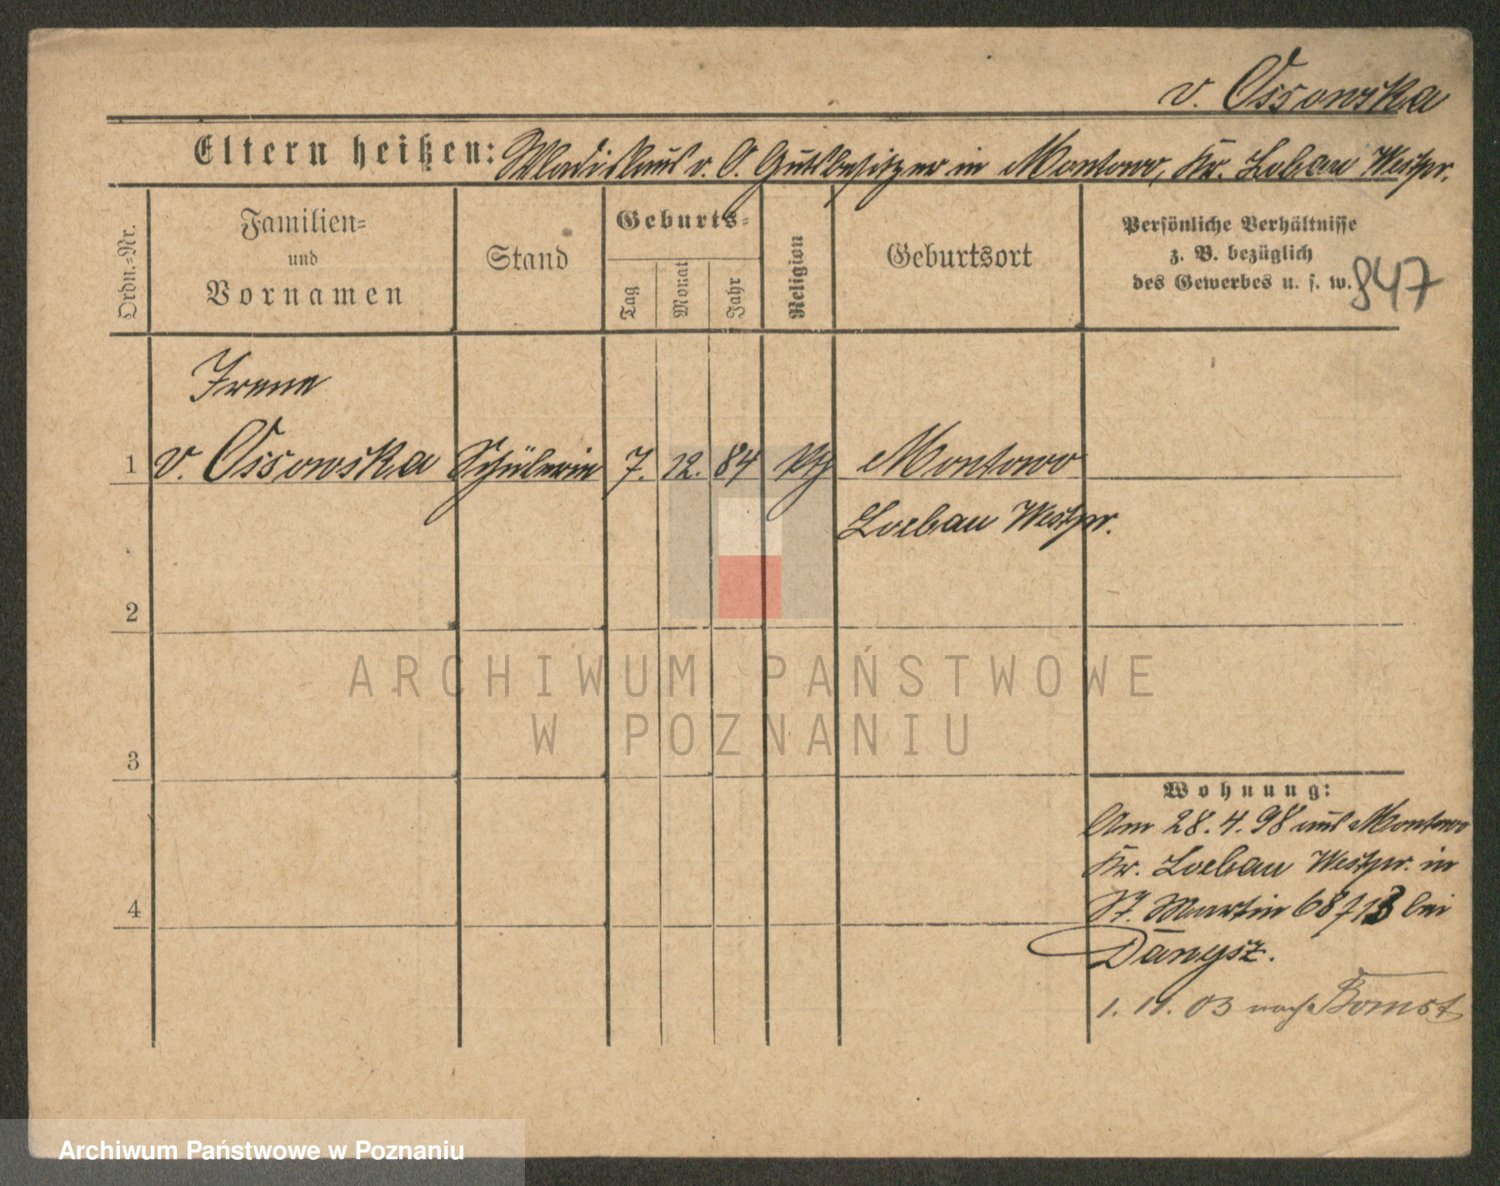 v. Ossowska
Eltern heißen: Wladislaus v. O. Gutsbesitzer in Montowo, Kr. Lobau Westpr.
Ordn.-Nr.
Familien-
und
Vornamen
Stand
Geburts-
Tag
Monat
Jahr
Religion
Geburtsort
Persönliche Verhältnisse
z. B. bezüglich
des Gewerbes u. s. w.
847
Irene
1 v. Ossowska Schülerin 7. 12. 84 kth Montowo
Loebau Westpr.
2
3
4
Wohnung:
Am 28.4.98 aus Montowo
Kr. Loebau Westpr. in
St. Martin 68/13 bei
Danysz.
1. 11. 03 nach Bomst
ARCHIWUM PAŃSTWOWE
W POZNANIU
Archiwum Państwowe w Poznaniu